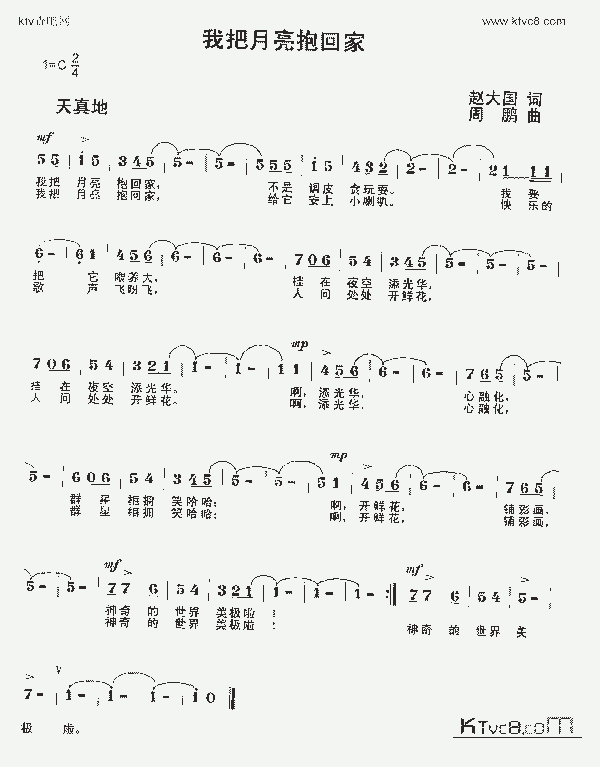 www.ktvc8.com
我把月亮抱回家
1=C 2/4
赵大国 词
天真地
周鹏 曲
mf
5 5 i 5 3 4 5 5 - 5 - 5 5 5 i 5 4 3 2 2 - 2 - 2 1 1 1
我把 月亮 抱回家， 不是 调皮 贪玩耍。 我要
我把 月亮 抱回家， 给它 安上 小喇叭。 快乐的
6 - 6 1 4 5 6 6 - 6 - 6 - 7 0 6 5 4 3 4 5 5 - 5 - 5 -
把 它 喂养大， 挂在 夜空 添光华，
歌 声 飞呀飞， 人间 处处 开鲜花，
mp
7 0 6 5 4 3 2 1 1 - 1 - 1 1 1 4 5 6 6 - 6 - 7 6 5 5 -
挂在 夜空 添光华。 啊，添光华， 心融化，
人间 处处 开鲜花。 啊，添光华， 心融化，
mp
5 - 6 0 6 5 4 3 4 5 5 - 5 - 5 1 4 5 6 6 - 6 - 7 6 5
群星 相拥 笑哈哈； 啊，开鲜花， 铺彩画，
群星 相拥 笑哈哈； 啊，开鲜花， 铺彩画，
mf mf
5 - 5 - 7 7 6 5 4 3 2 1 1 - 1 - 1 - 7 7 6 5 4 5 -
神奇 的 世界 美极啦！
神奇 的 世界 美极啦！ 神奇 的 世界 美
7 - 1 - 1 - 1 - 1 0
极 啦。
KTvc8.com